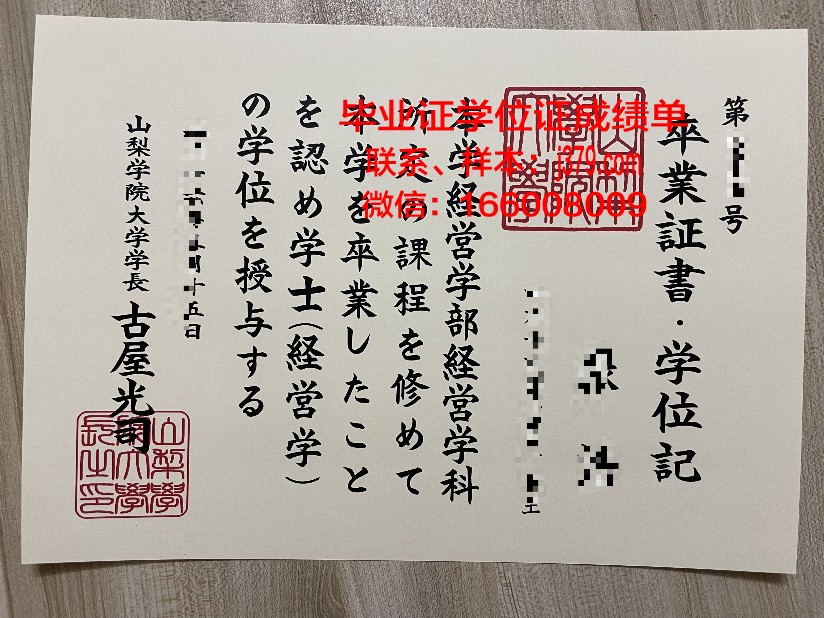 第
号
卒業証書・学位記
本学経営学部経営学科
所定の課程を修めて
本学を卒業したこと
を認め学士(経営学)
の学位を授与する
月十五日
山梨学院大学学長 古屋光司
毕业证学位证成绩单
联系、样本:j379.com
微信:166008009